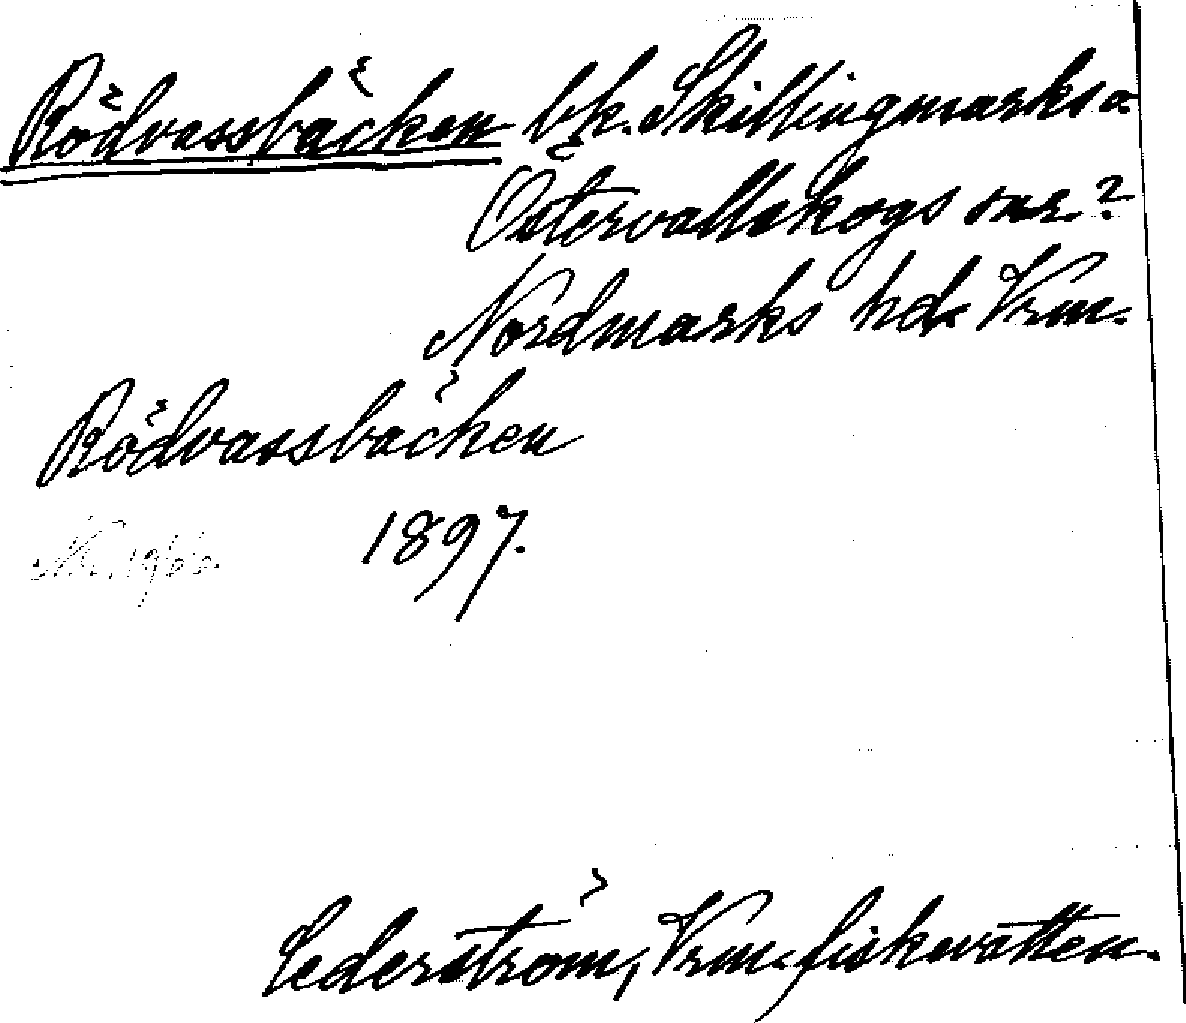 Rödvassbäcken bk. Skillingmarks o.
Östervallskogs snr.?
Nordmarks hd. Vrm.
Rödvassbäcken
1897.
Cederström, Vrm. fiskevatten.